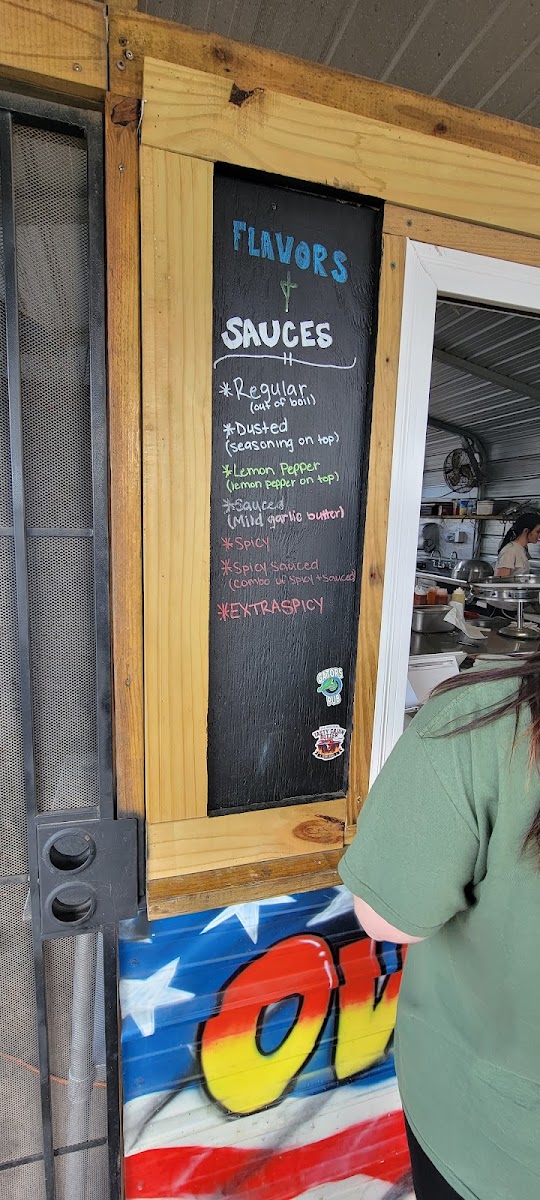 FLAVORS
+
SAUCES
*Regular
(out of boil)
*Dusted
(seasoning on top)
*Lemon Pepper
(lemon pepper on top)
*Sauced
(Mild garlic butter)
*Spicy
*Spicy Sauced
(combo w/ Spicy + Sauced)
*EXTRASPICY
GATORS
PUB
OW